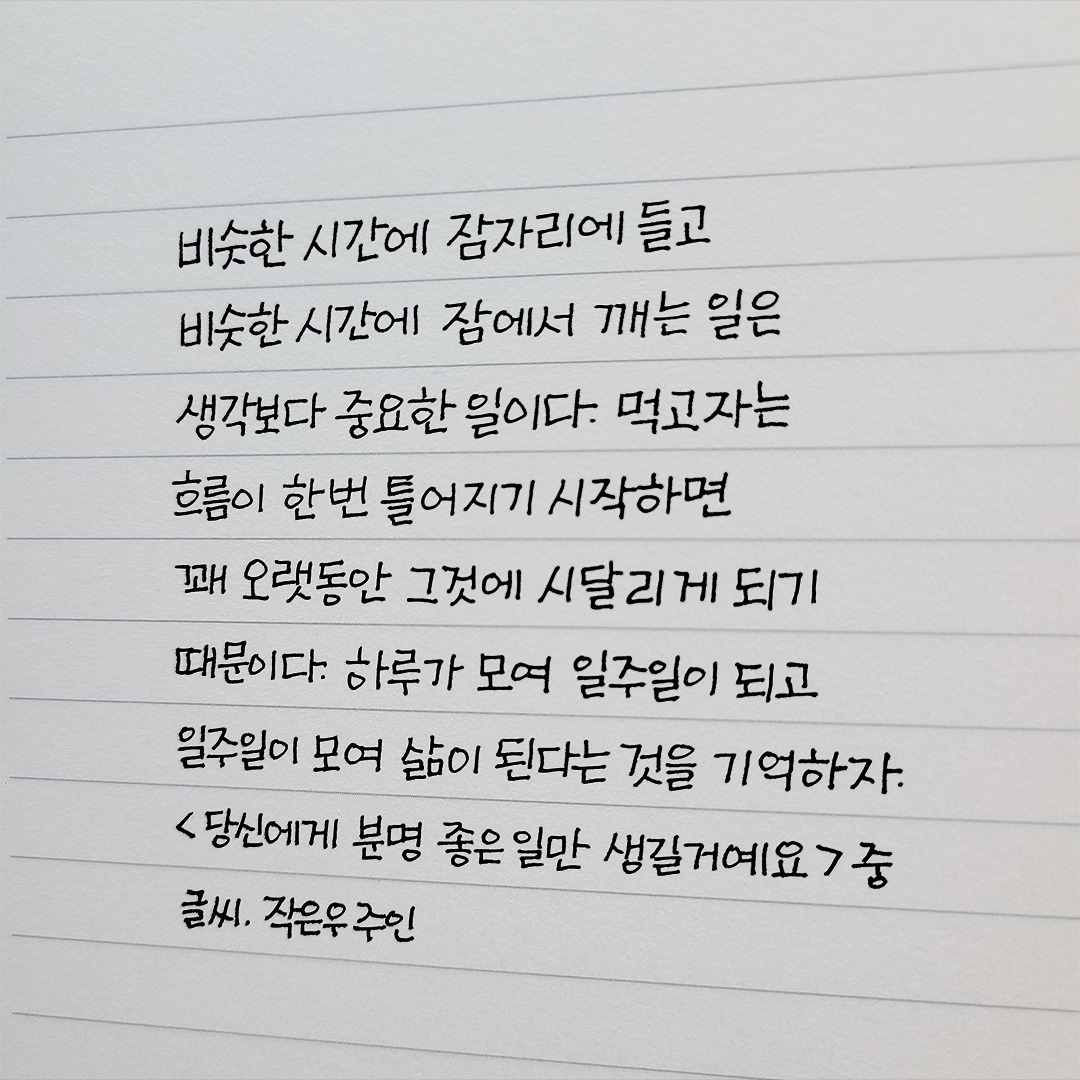 비슷한 시간에 잠자리에 들고
비슷한 시간에 잠에서 깨는 일은
생각보다 중요한 일이다. 먹고자는
흐름이 한번 틀어지기 시작하면
꽤 오랫동안 그것에 시달리게 되기
때문이다. 하루가 모여 일주일이 되고
일주일이 모여 삶이 된다는 것을 기억하자.
<당신에게 분명 좋은 일만 생길거예요> 중
글씨. 작은우주인